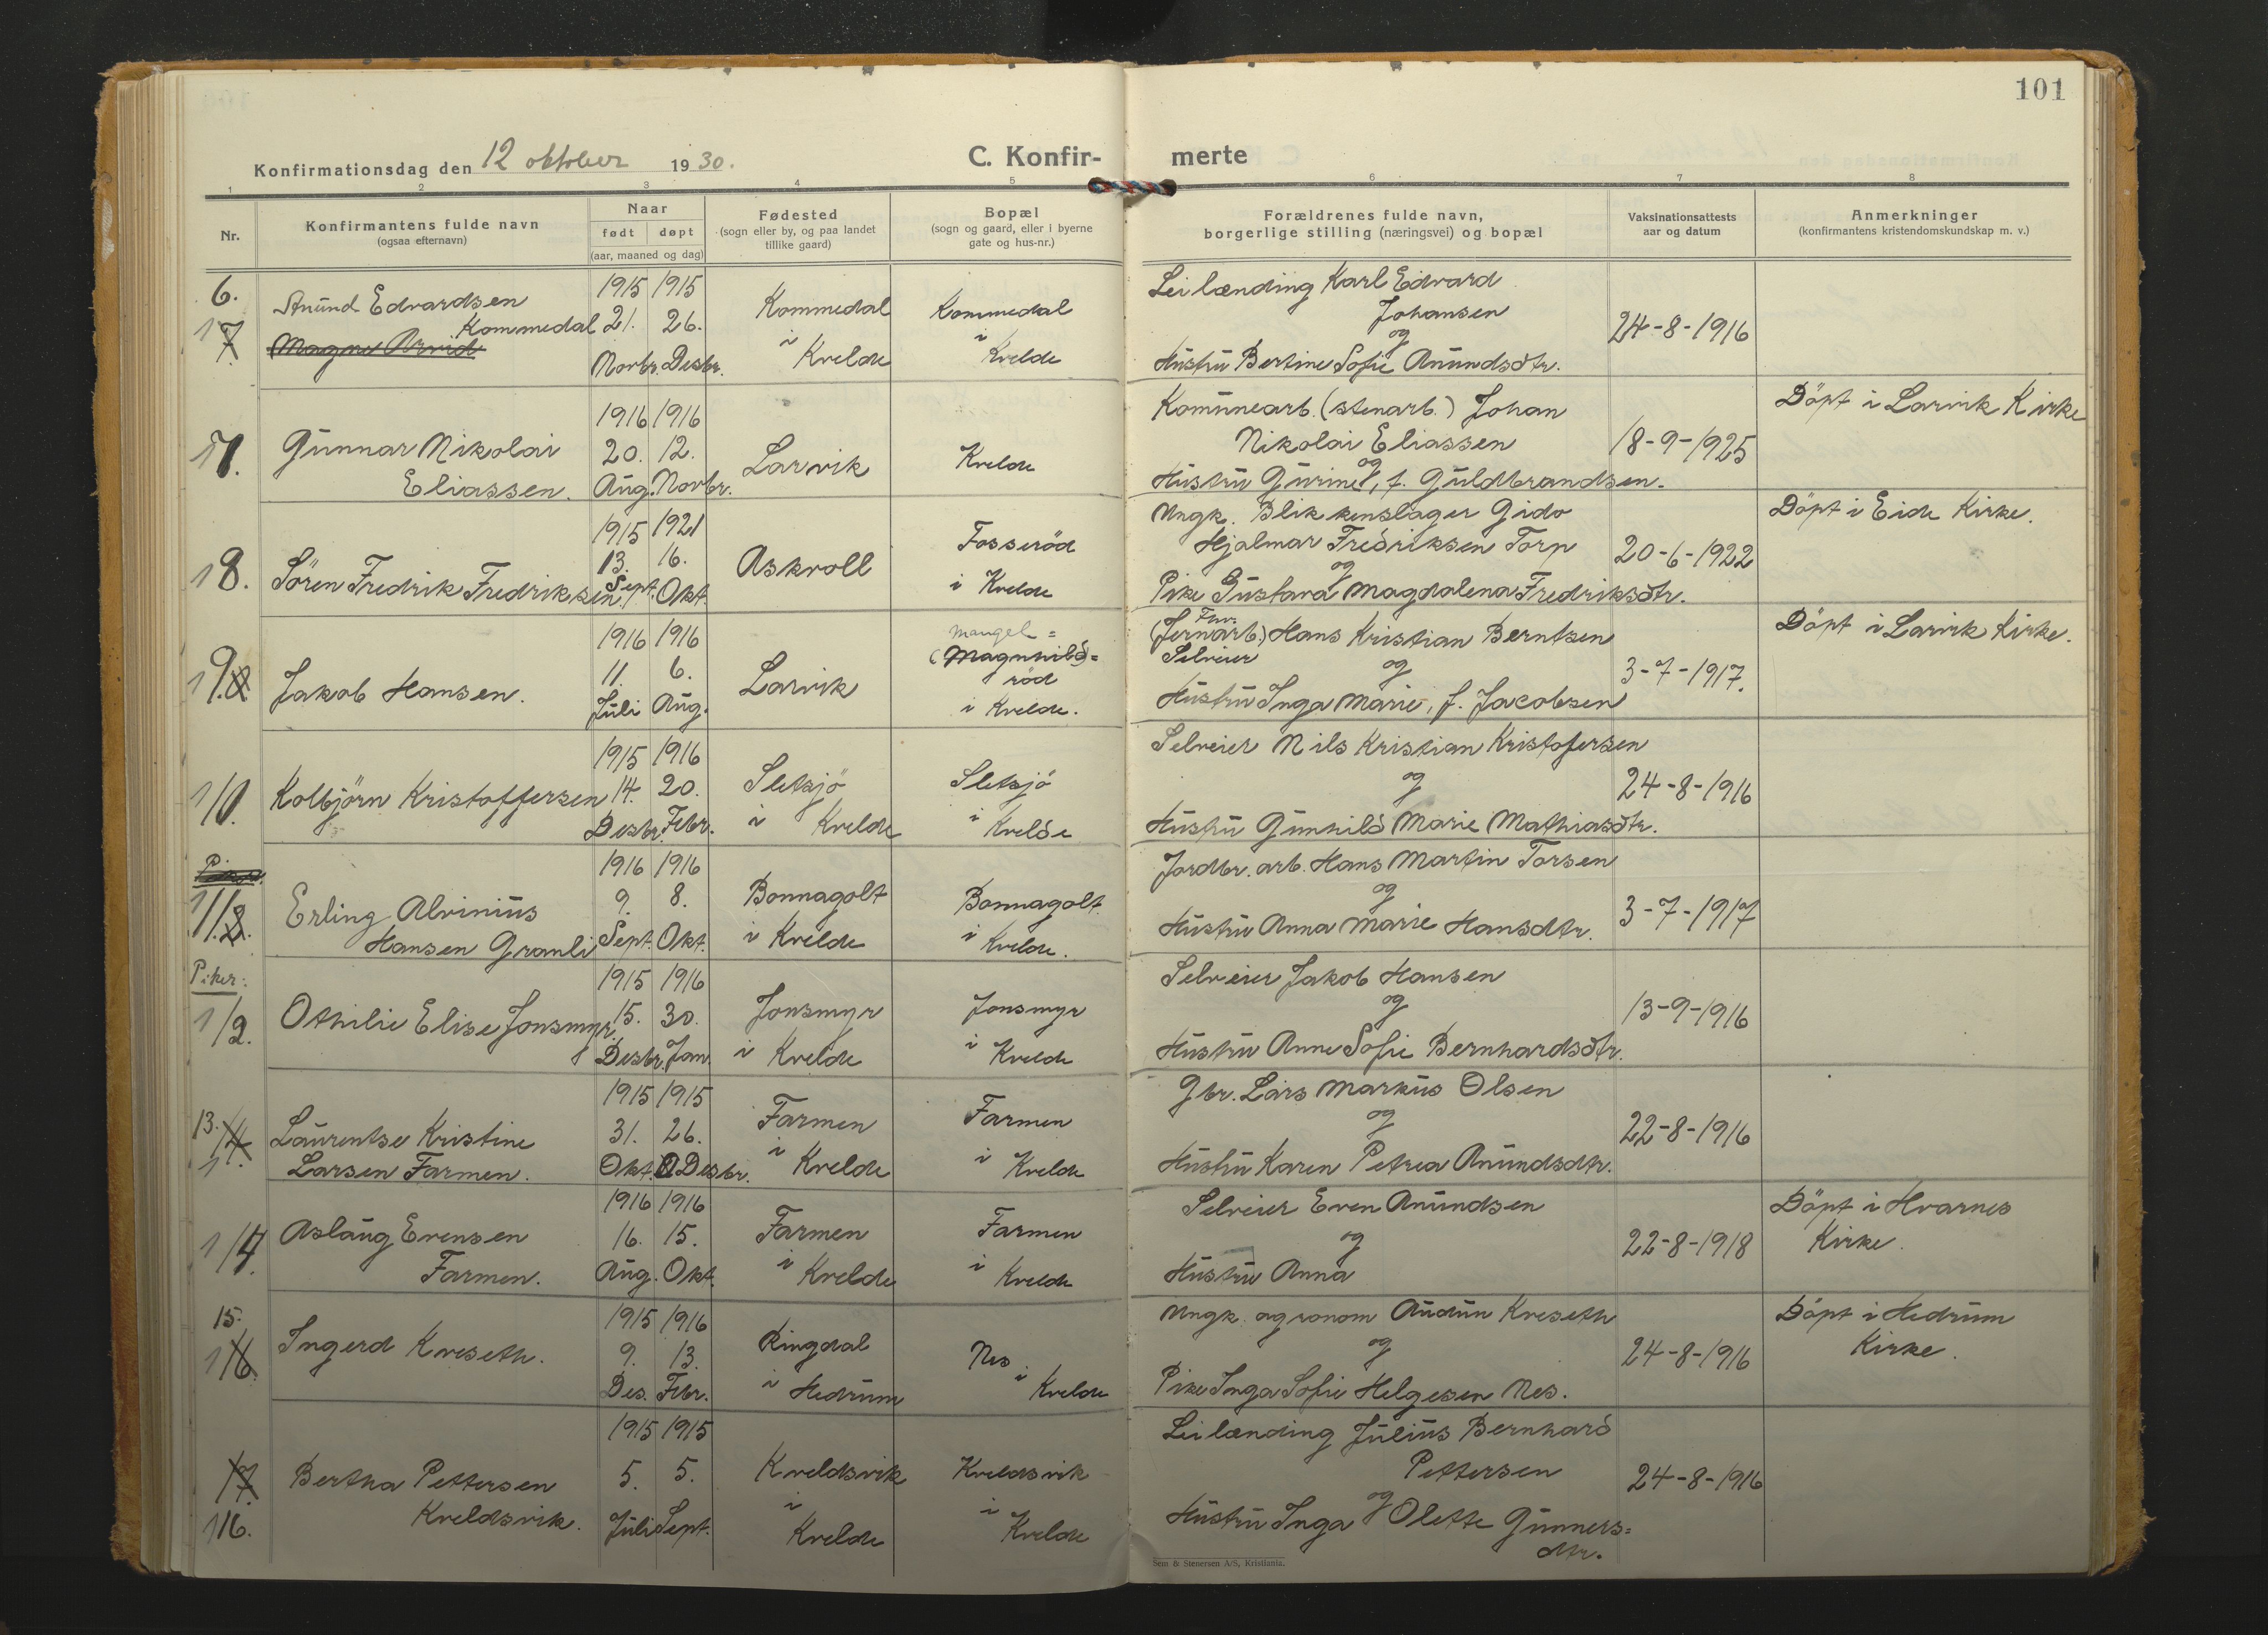 101
Konfirmationsdag den 12 oktober 1930.
C. Konfir- merte
1 2 3 4 5 6 7 8
Nr.
Konfirmantens fulde navn
(ogsaa efternavn)
Naar
født døpt
(aar, maaned og dag)
Fødested
(sogn eller by, og paa landet
tillike gaard)
Bopæl
(sogn og gaard, eller i byerne
gate og hus-nr.)
Forældrenes fulde navn,
borgerlige stilling (næringsvei) og bopæl
Vaksinationsattests
aar og datum
Anmerkninger
(konfirmantens kristendomskundskap m. v.)
6.
1 7
Anünd Edvardsen
Kommedal
Magne Arvid
1915 1915
21. 26.
Novbr. Desbr.
Kommedal
i
Kvelde
Kommedal
i
Kvelde
Leilænding Karl Edvard
Johansen
og
Hüstrü Bertine Sofie Anündsdtr.
24-8-1916
Günnar Nikolai
Eliassen.
1916 1916
20. 12.
Aüg. Novbr.
Larvik
Kvelde
Komünearb. (stenarb.) Johan
Nikolai Eliassen
og
Hüstrü Gürine, f. Güldbrandsen.
18-9-1925
Döpt i Larvik Kirke
1 8.
Sören Fredrik Fredriksen
1915 1921
13. 16.
Sept. Okt.
Askvoll
Fosseröd
i Kvelde
Ungk. Blikkenslager Gido
Hjalmar Fredriksen Torp
og
Pike Güstava Magdalena Fredriksdtr.
20-6-1922
Döpt i Eide Kirke.
1 9.
Jakob Hansen.
1916 1916
11. 6.
Jüli Aüg.
Larvik
Mangel=
(Magnhild)=
röd
i Kvelde.
Fhv.
(Jernarb.) Hans Kristian Berntsen
Selveier
og
Hüstrü Inga Marie, f. Jacobsen
3-7-1917.
Döpt i Larvik Kirke.
1/0.
Kolbjörn Kristoffersen
1915 1916
14. 20.
Desbr. Febr.
Sletsjö
i Kvelde
Sletsjö
i Kvelde
Selveier Nils Kristian Kristofersen
og
Hüstrü Günhild Marie Mathiasdtr.
24-8-1916
1/1. 2.
Erling Alviniüs
Hansen Granli
1916 1916
9. 8.
Sept. Okt.
Bonnagolt
i Kvelde
Bonnagolt
i Kvelde.
Jordbr. arb. Hans Martin Torsen
og
Hüstrü Anna Marie Hansdtr.
3-7-1917
Piker:
1/2.
Othilie Elise Jonsmyr.
1915 1916
15. 30.
Desbr. Jan.
Jonsmyr
i Kvelde
Jonsmyr
i Kvelde
Selveier Jakob Hansen
og
Hüstrü Anne Sofie Bernhardsdtr.
13-9-1916
13. 14.
1
Laürentse Kristine
Larsen Farmen.
1915 1915
31. 26.
Okt. Desbr.
Farmen
i Kvelde
Farmen
i Kvelde
Gbr. Lars Marküs Olsen
og
Hüstrü Karen Petrea Anündsdtr.
22-8-1916
1 14.
Aslaüg Evensen
Farmen.
1916 1916
16. 15.
Aüg. Okt.
Farmen
i Kvelde
Farmen
i Kvelde
Selveier Even Anündsen
og
Hüstrü Anna
22-8-1918
Döpt i Hvarnes
Kirke.
15.
1 16
Ingerd Kveseth.
1915 1916
9. 13.
Des. Febr.
Ringdal
i Hedrüm
Nes
i Kvelde
Ungk. agronom Aüdün Kveseth
og
Pike Inga Sofie Helgesen Nes.
24-8-1916
Döpt i Hedrüm
Kirke.
17.
116.
Bertha Pettersen
Kveldsvik.
1915 1915
5. 5.
Jüli Sept.
Kveldsvik
i
Kvelde
Kveldsvik
i
Kvelde
Leilænding Jüliüs Bernhard
Pettersen
og
Hüstrü Inga Olette Günners=
dtr.
24-8-1916
Sem & Stenersen A/S, Kristiania.